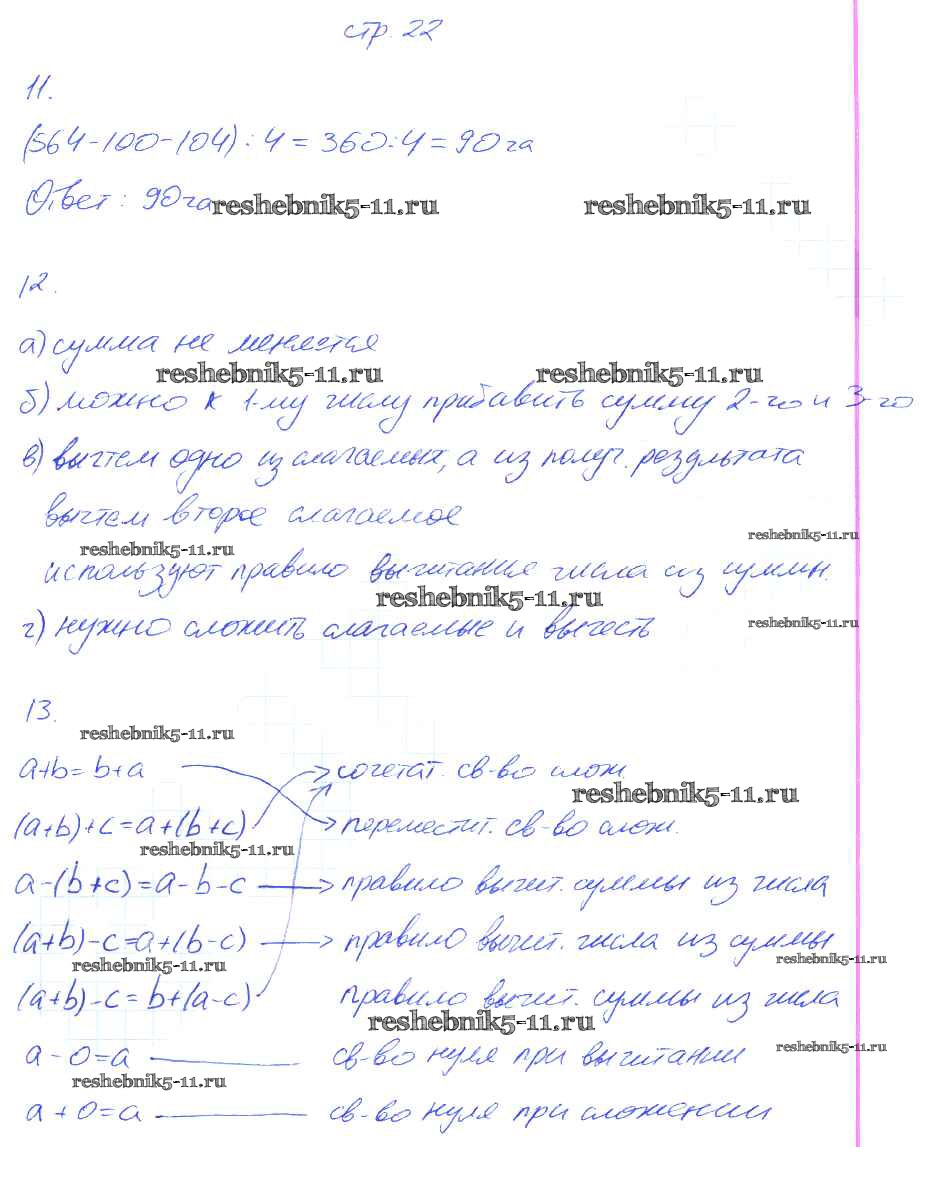 стр. 22
11.
(564-100-104):4=360:4=90га
Ответ: 90га
reshebnik5-11.ru reshebnik5-11.ru
12.
а) сумма не меняется
reshebnik5-11.ru reshebnik5-11.ru
б) можно к 1-му числу прибавить сумму 2-го и 3-го
в) вычтем одно из слагаемых, а из получ. результата
вычтем второе слагаемое
reshebnik5-11.ru reshebnik5-11.ru
используют правило вычитания числа из суммы.
reshebnik5-11.ru
г) нужно сложить слагаемые и вычесть
reshebnik5-11.ru
13.
reshebnik5-11.ru
a+b=b+a сочетат. св-во слож.
reshebnik5-11.ru
(a+b)+c=a+(b+c) переместит. св-во слож.
reshebnik5-11.ru
a-(b+c)=a-b-c правило вычит. суммы из числа
(a+b)-c=a+(b-c) правило вычит. числа из суммы
reshebnik5-11.ru reshebnik5-11.ru
(a+b)-c=b+(a-c) правило вычит. суммы из числа
reshebnik5-11.ru
a-0=a св-во нуля при вычитании
reshebnik5-11.ru
reshebnik5-11.ru
a+0=a св-во нуля при сложении